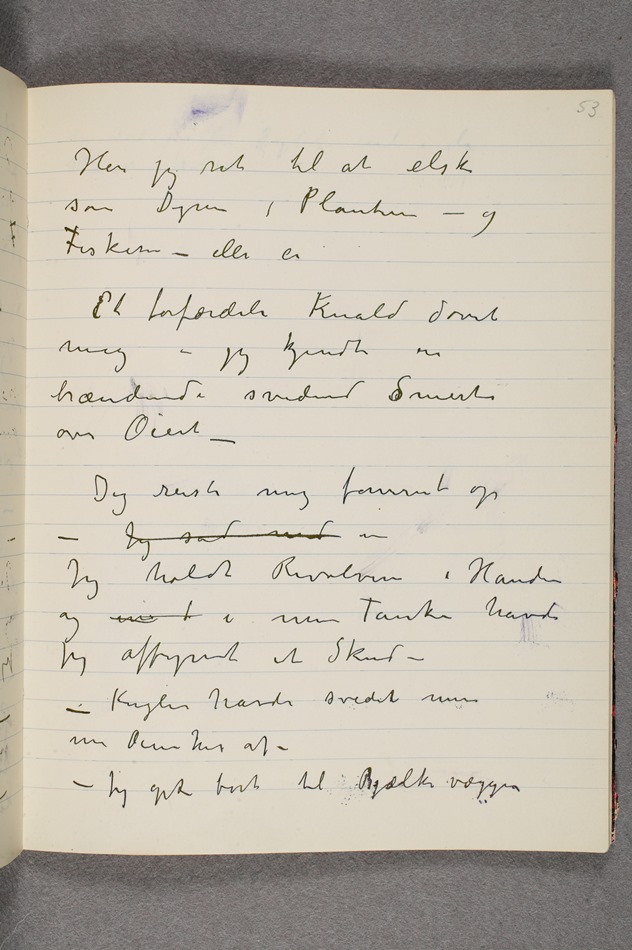 53
Har jeg ret til at elske
som Dyren, Planten – og
Fisken – eller ei
Et forfærdele Knald døvet
mig – jeg kjendte en
brændende sviende Smerte
over Øiet –
Jeg reiste mig forvirret op
– Jeg sad med en
Jeg holdt Revolveren i Handen
og i min Tanke havde
jeg affyret et Skud –
– Kuglen havde svedet min
af –
– Jeg gik bort til Bjælkevæggen